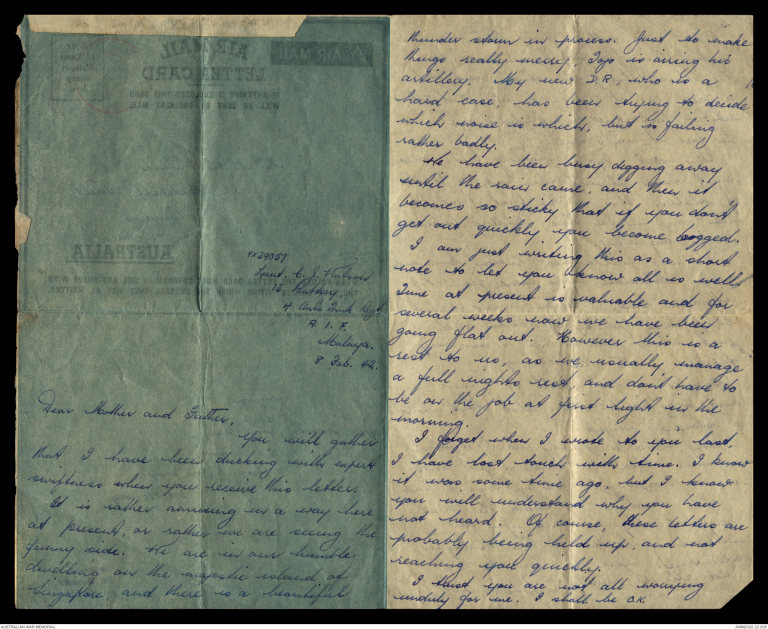 AIR MAIL
AIR MAIL
LETTER CARD
IF ANYTHING IS ENCLOSED THIS CARD
WILL BE SENT BY ORDINARY MAIL.
AUSTRALIA
VX39057
Lieut. C. J.
16 Battery
4 Anti Tank Regt
A. I. F.
Malaya.
8 Feb. 42.
Dear Mother and Father,
You will gather
that I have been ducking with expert
swiftness when you receive this letter.
It is rather amusing in a way here
at present, or rather we are seeing the
funny side. We are in our humble
dwelling on the majestic island of
Singapore, and there is a beautiful
thunder storm in process. Just to make
things really merry, Tojo is airing his
artillery. My new D.R., who is a
hard case, has been trying to decide
which noise is which, but is failing
rather badly.
We have been busy digging away
until the rain came, and then it
becomes so sticky that if you don't
get out quickly you become bogged.
I am just writing this as a short
note to let you know all is well.
Time at present is valuable and for
several weeks now we have been
going flat out. However this is a
rest to us, as we usually manage
a full nights rest, and don't have to
be on the job at first light in the
morning.
I forget when I wrote to you last.
I have lost touch with time. I know
it was some time ago, but I know
you will understand why you have
not heard. Of course, these letters are
probably being held up, and not
reaching you quickly.
I trust you are not all worrying
unduly for me. I shall be O.K.
AUSTRALIAN WAR MEMORIAL